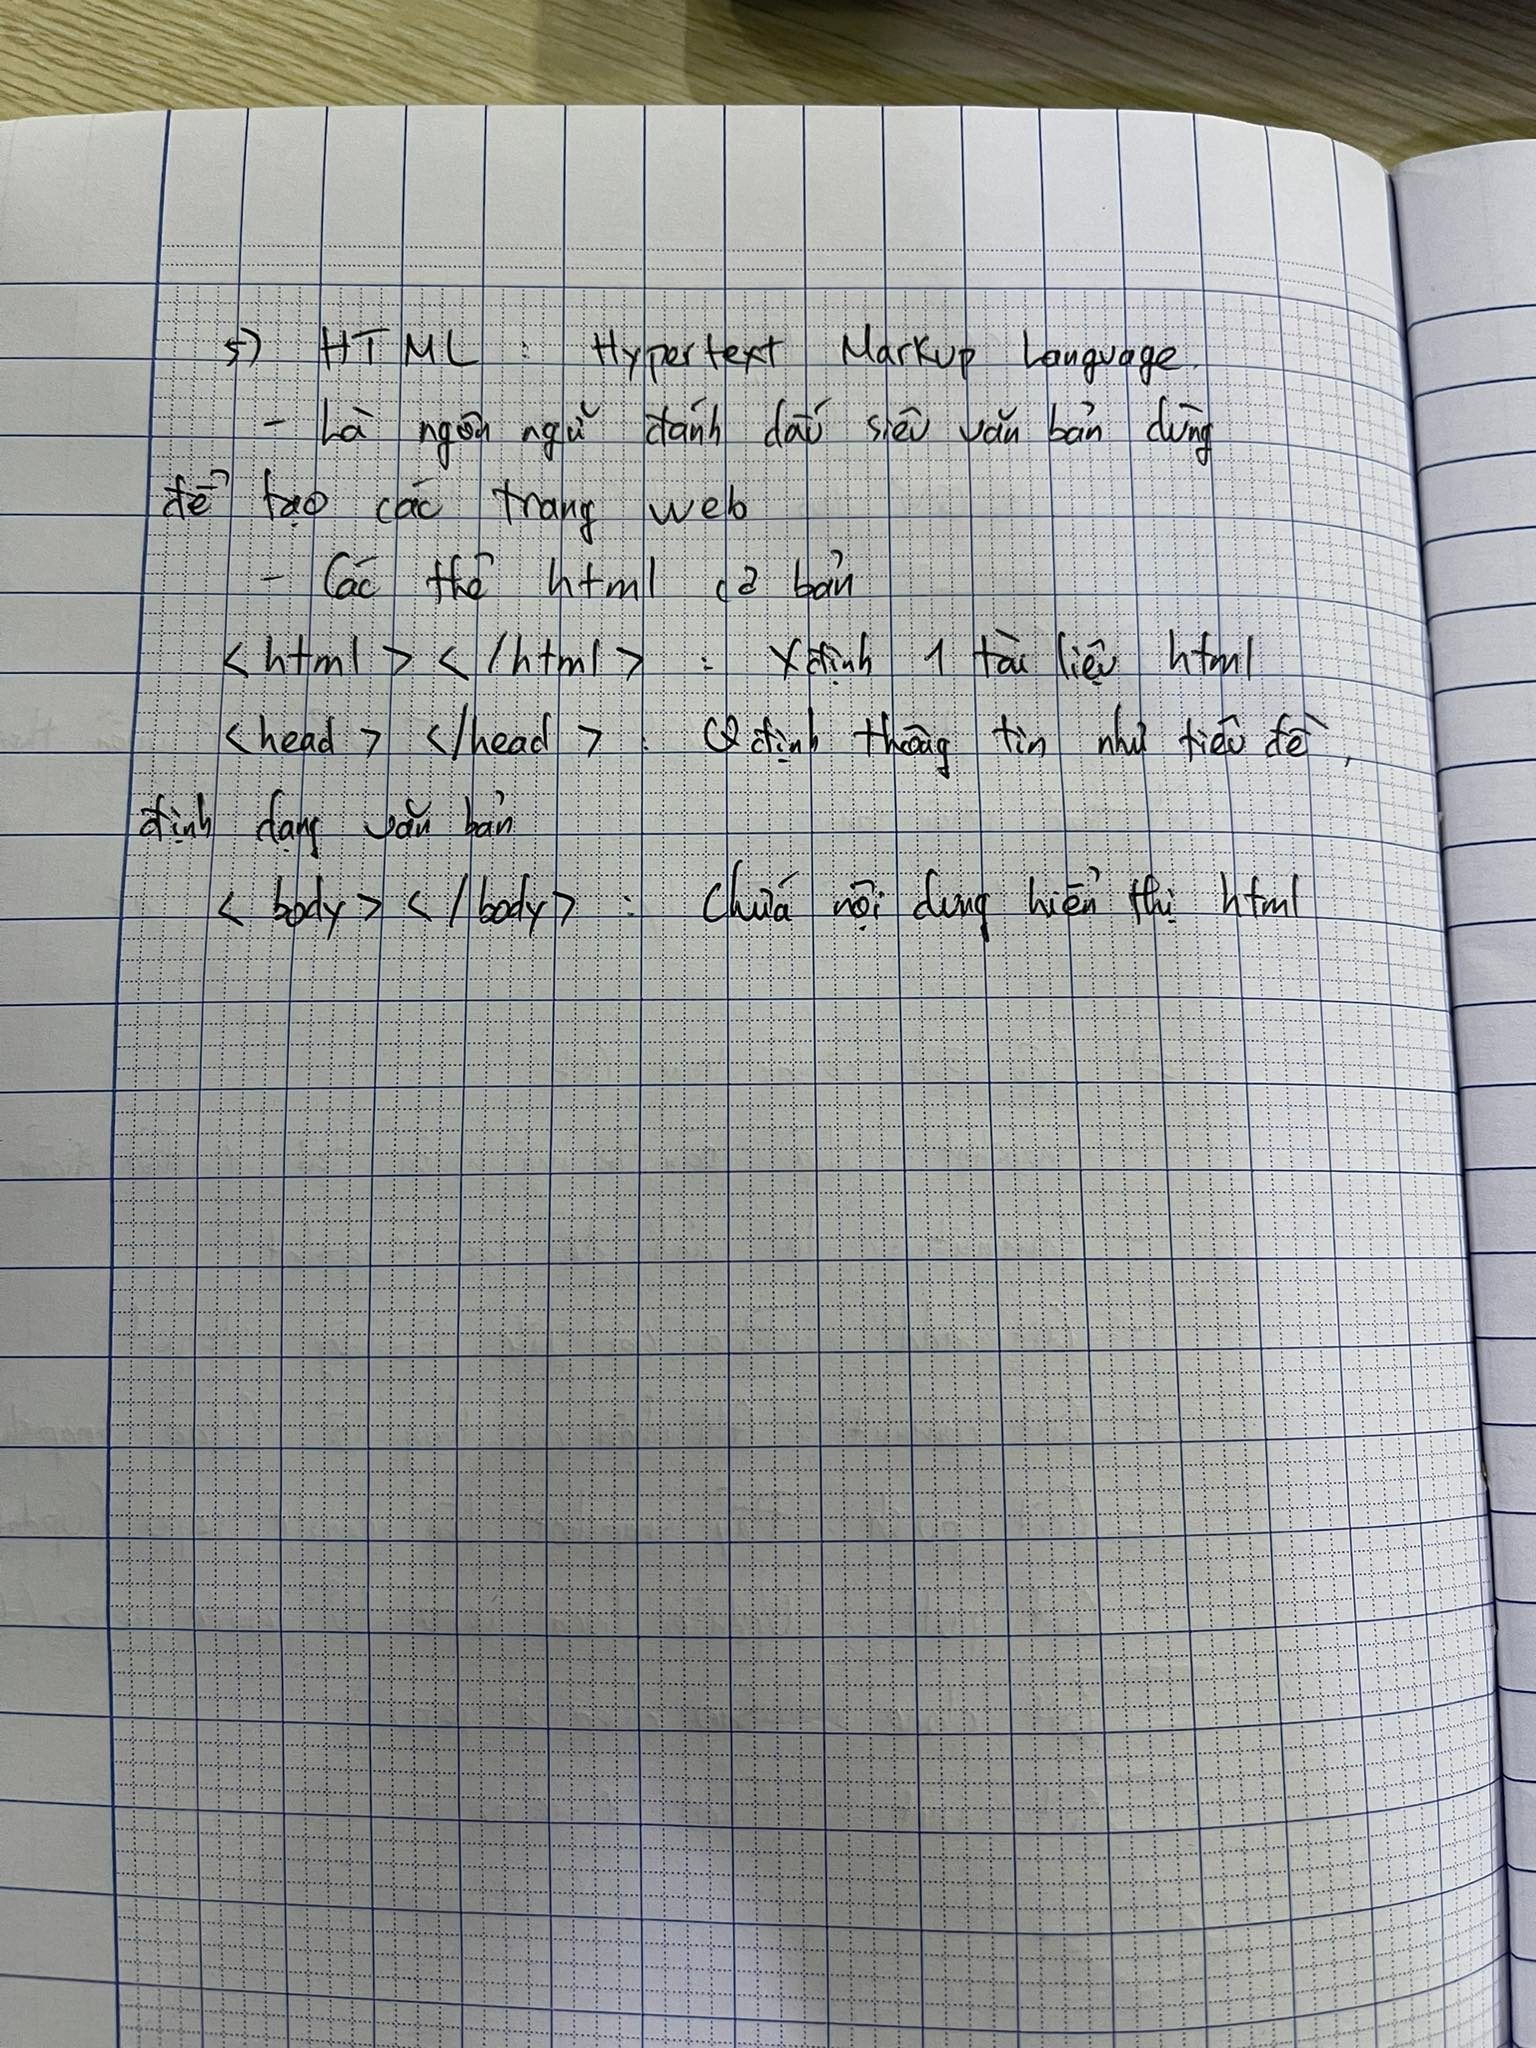 5) HTML : Hypertext Markup Language.
- Là ngôn ngữ đánh dấu siêu văn bản dùng
để tạo các trang web
- Các thẻ html cơ bản
<html></html> : Xđịnh 1 tài liệu html
<head> </head> : Qđịnh thông tin như tiêu đề,
định dạng văn bản
<body></body> : Chứa nội dung hiển thị html